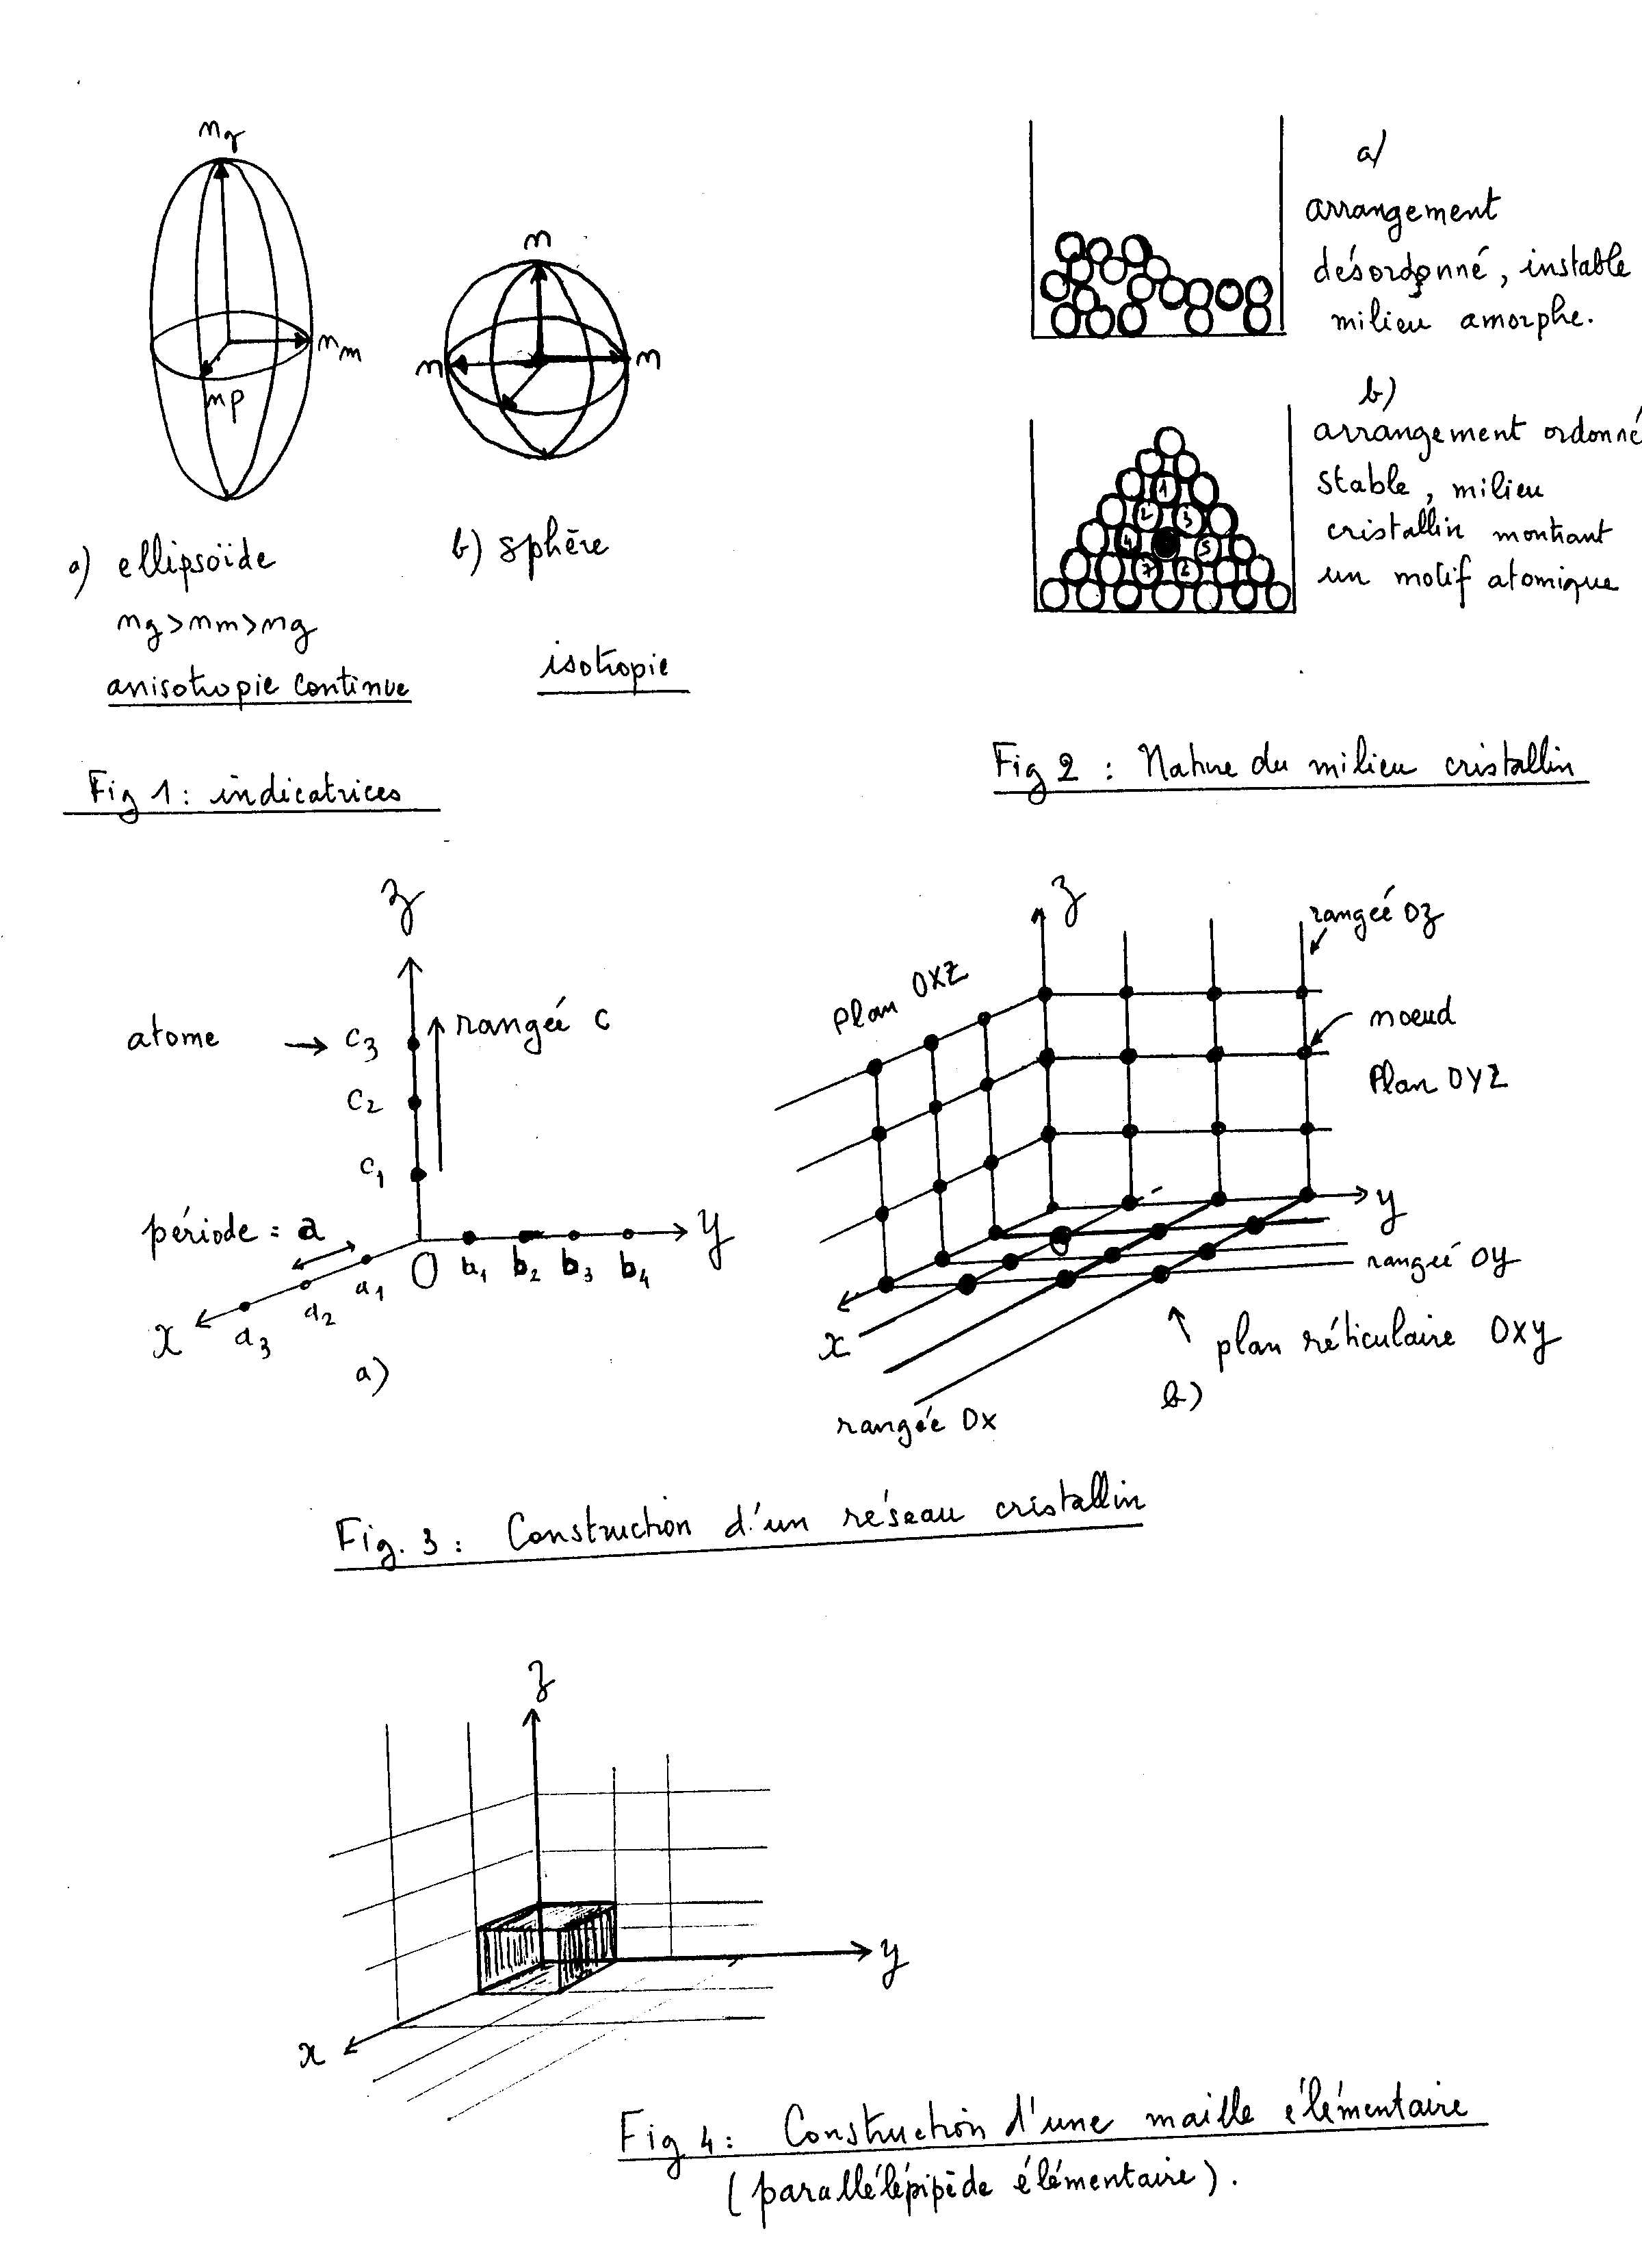 ng
nm
np
a) ellipsoïde
ng>nm>ng
anisotropie continue
n
n
n
b) sphère
isotropie
Fig 1: indicatrices
a)
arrangement
désordonné, instable
milieu amorphe.
b)
arrangement ordonné
stable, milieu
cristallin montrant
un motif atomique
1
2
3
4
5
7
6
Fig 2 : Nature du milieu cristallin
z
atome → c3
rangée c
c2
c1
période = a
O
a1
a2
a3
x
b1
b2
b3
b4
y
a)
z
rangée Oz
Plan OXZ
noeud
Plan OYZ
y
rangée OY
x
plan réticulaire OXY
rangée OX
b)
Fig. 3 : Construction d'un réseau cristallin
z
y
x
Fig 4 : Construction d'une maille élémentaire
(parallélépipède élémentaire).